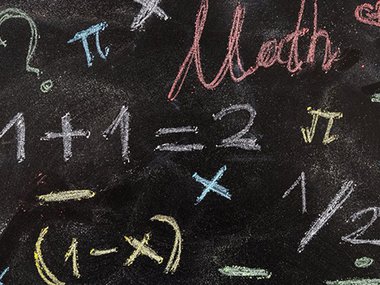 ? π Math
1 + 1 = 2 √π
× 1/2
(1 - x)